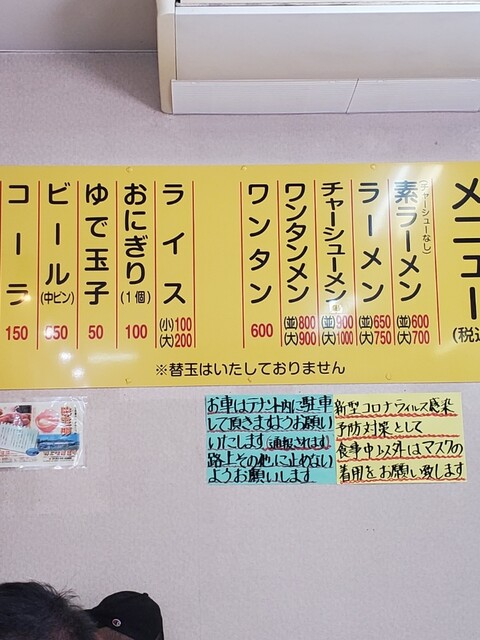 メニュー
(税込
素ラーメン
(チャーシューなし)
(並)600
(大)700
ラーメン
(並)650
(大)750
チャーシューメン
(並)900
(大)1000
ワンタンメン
(並)800
(大)900
ワンタン
600
ライス
(小)100
(大)200
おにぎり
(1個)
100
ゆで玉子
50
ビール
(中ビン)
コーラ
150
※替玉はいたしておりません
お車はテナント内に駐車
して頂きますようお願い
いたします(通報されます)
路上その他に止めない
ようお願いします
新型コロナウィルス感染
予防対策として
食事中以外はマスクの
着用をお願い致します